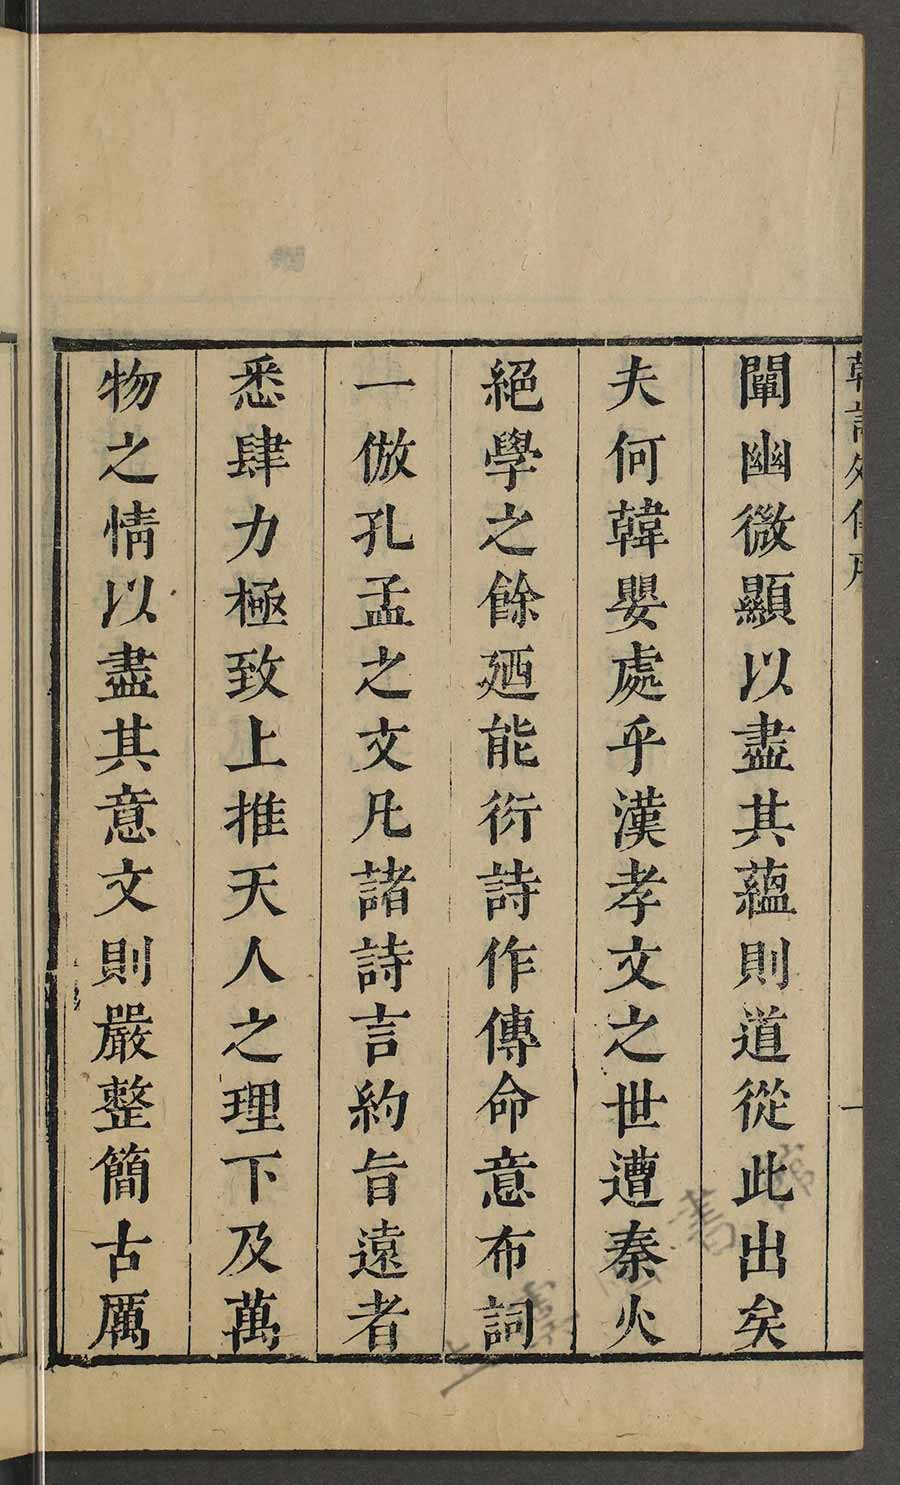 韓詩外傳序
一
闡幽微顯以盡其蘊則道從此出矣
夫何韓嬰處乎漢孝文之世遭秦火
絕學之餘廼能衍詩作傳命意布詞
一倣孔孟之文凡諸詩言約旨遠者
悉肆力極致上推天人之理下及萬
物之情以盡其意文則嚴整簡古厲